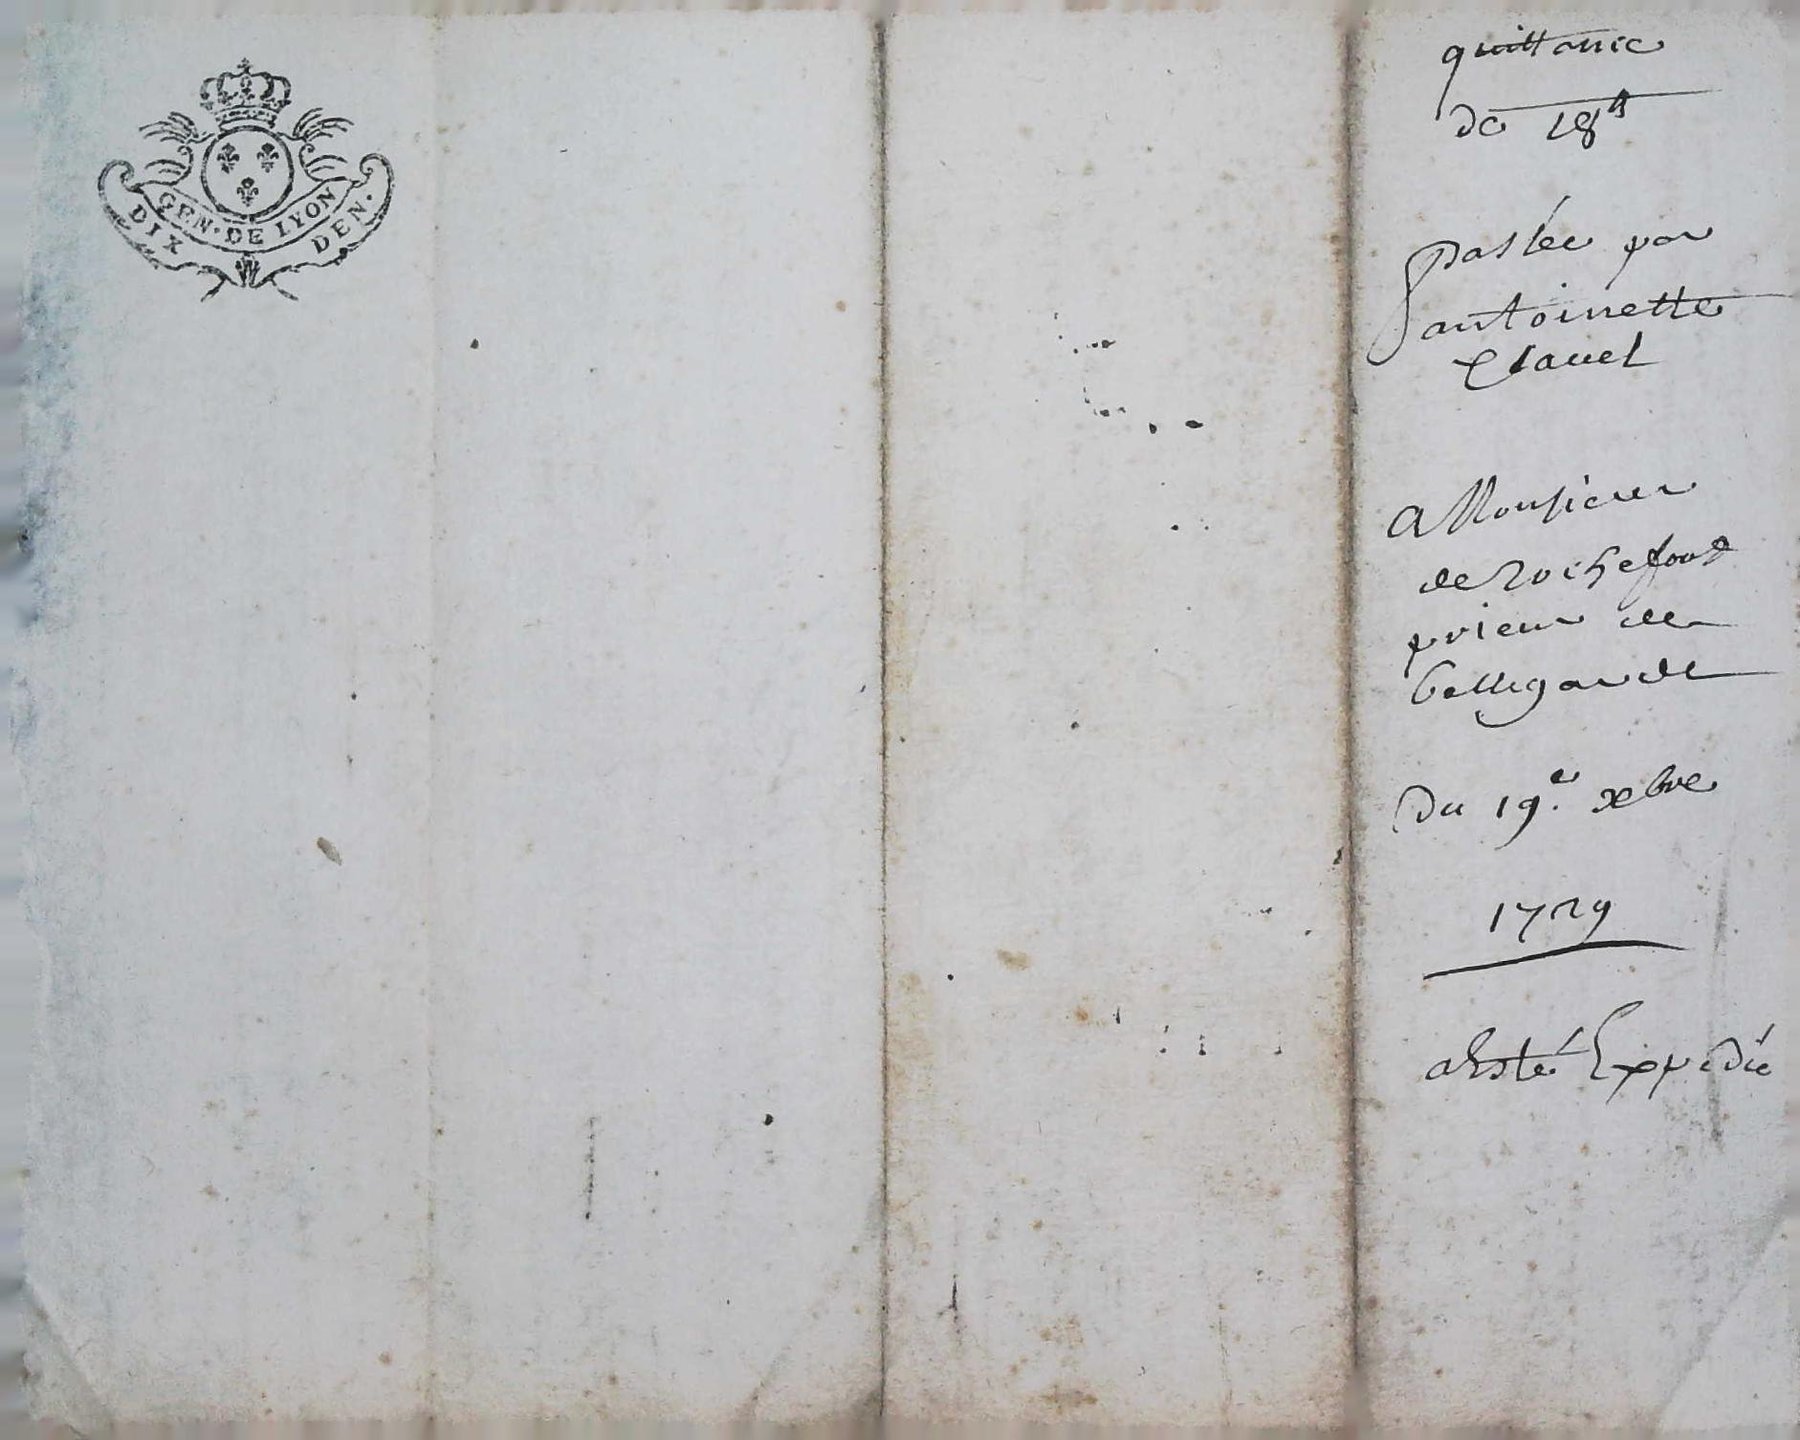 GEN. DE LYON
DIX DEN.
quittance
de 18tt
passée par
antoinette
Clavel
A Monsieur
de rochefort
prieur de
bellegarde
Du 19.e xbre
1729
a Esté Expedié